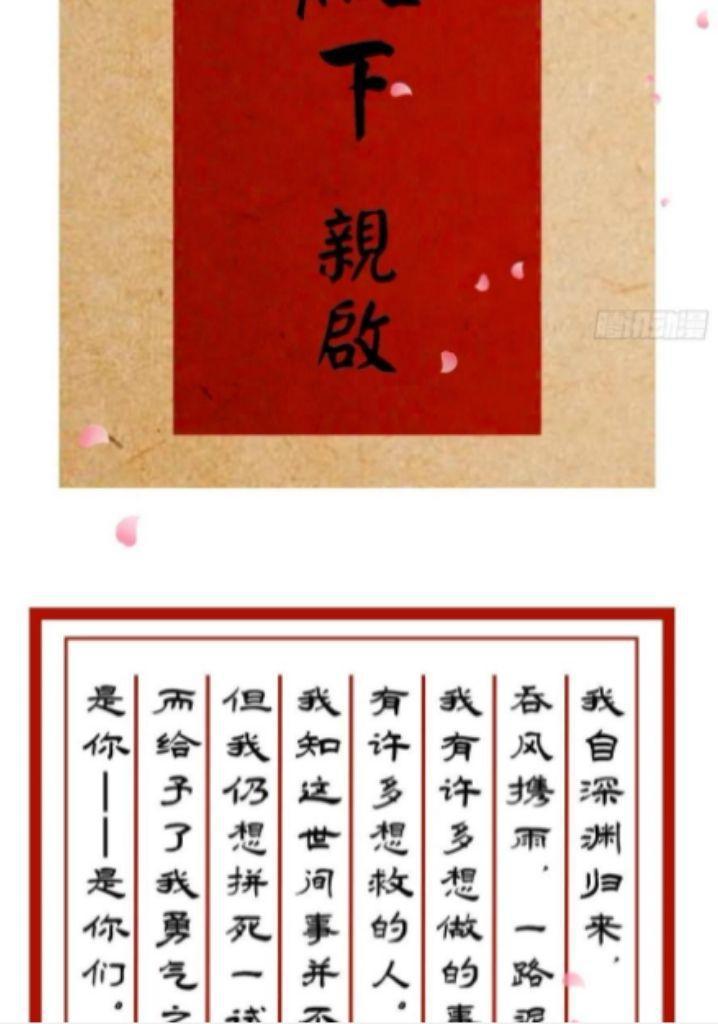 下
親啟
腾讯动漫
我自深渊归来，
吞风携雨，一路泥
我有许多想做的事
有许多想救的人。
我知这世间事并不
但我仍想拼死一试
而给予了我勇气之
是你——是你们。